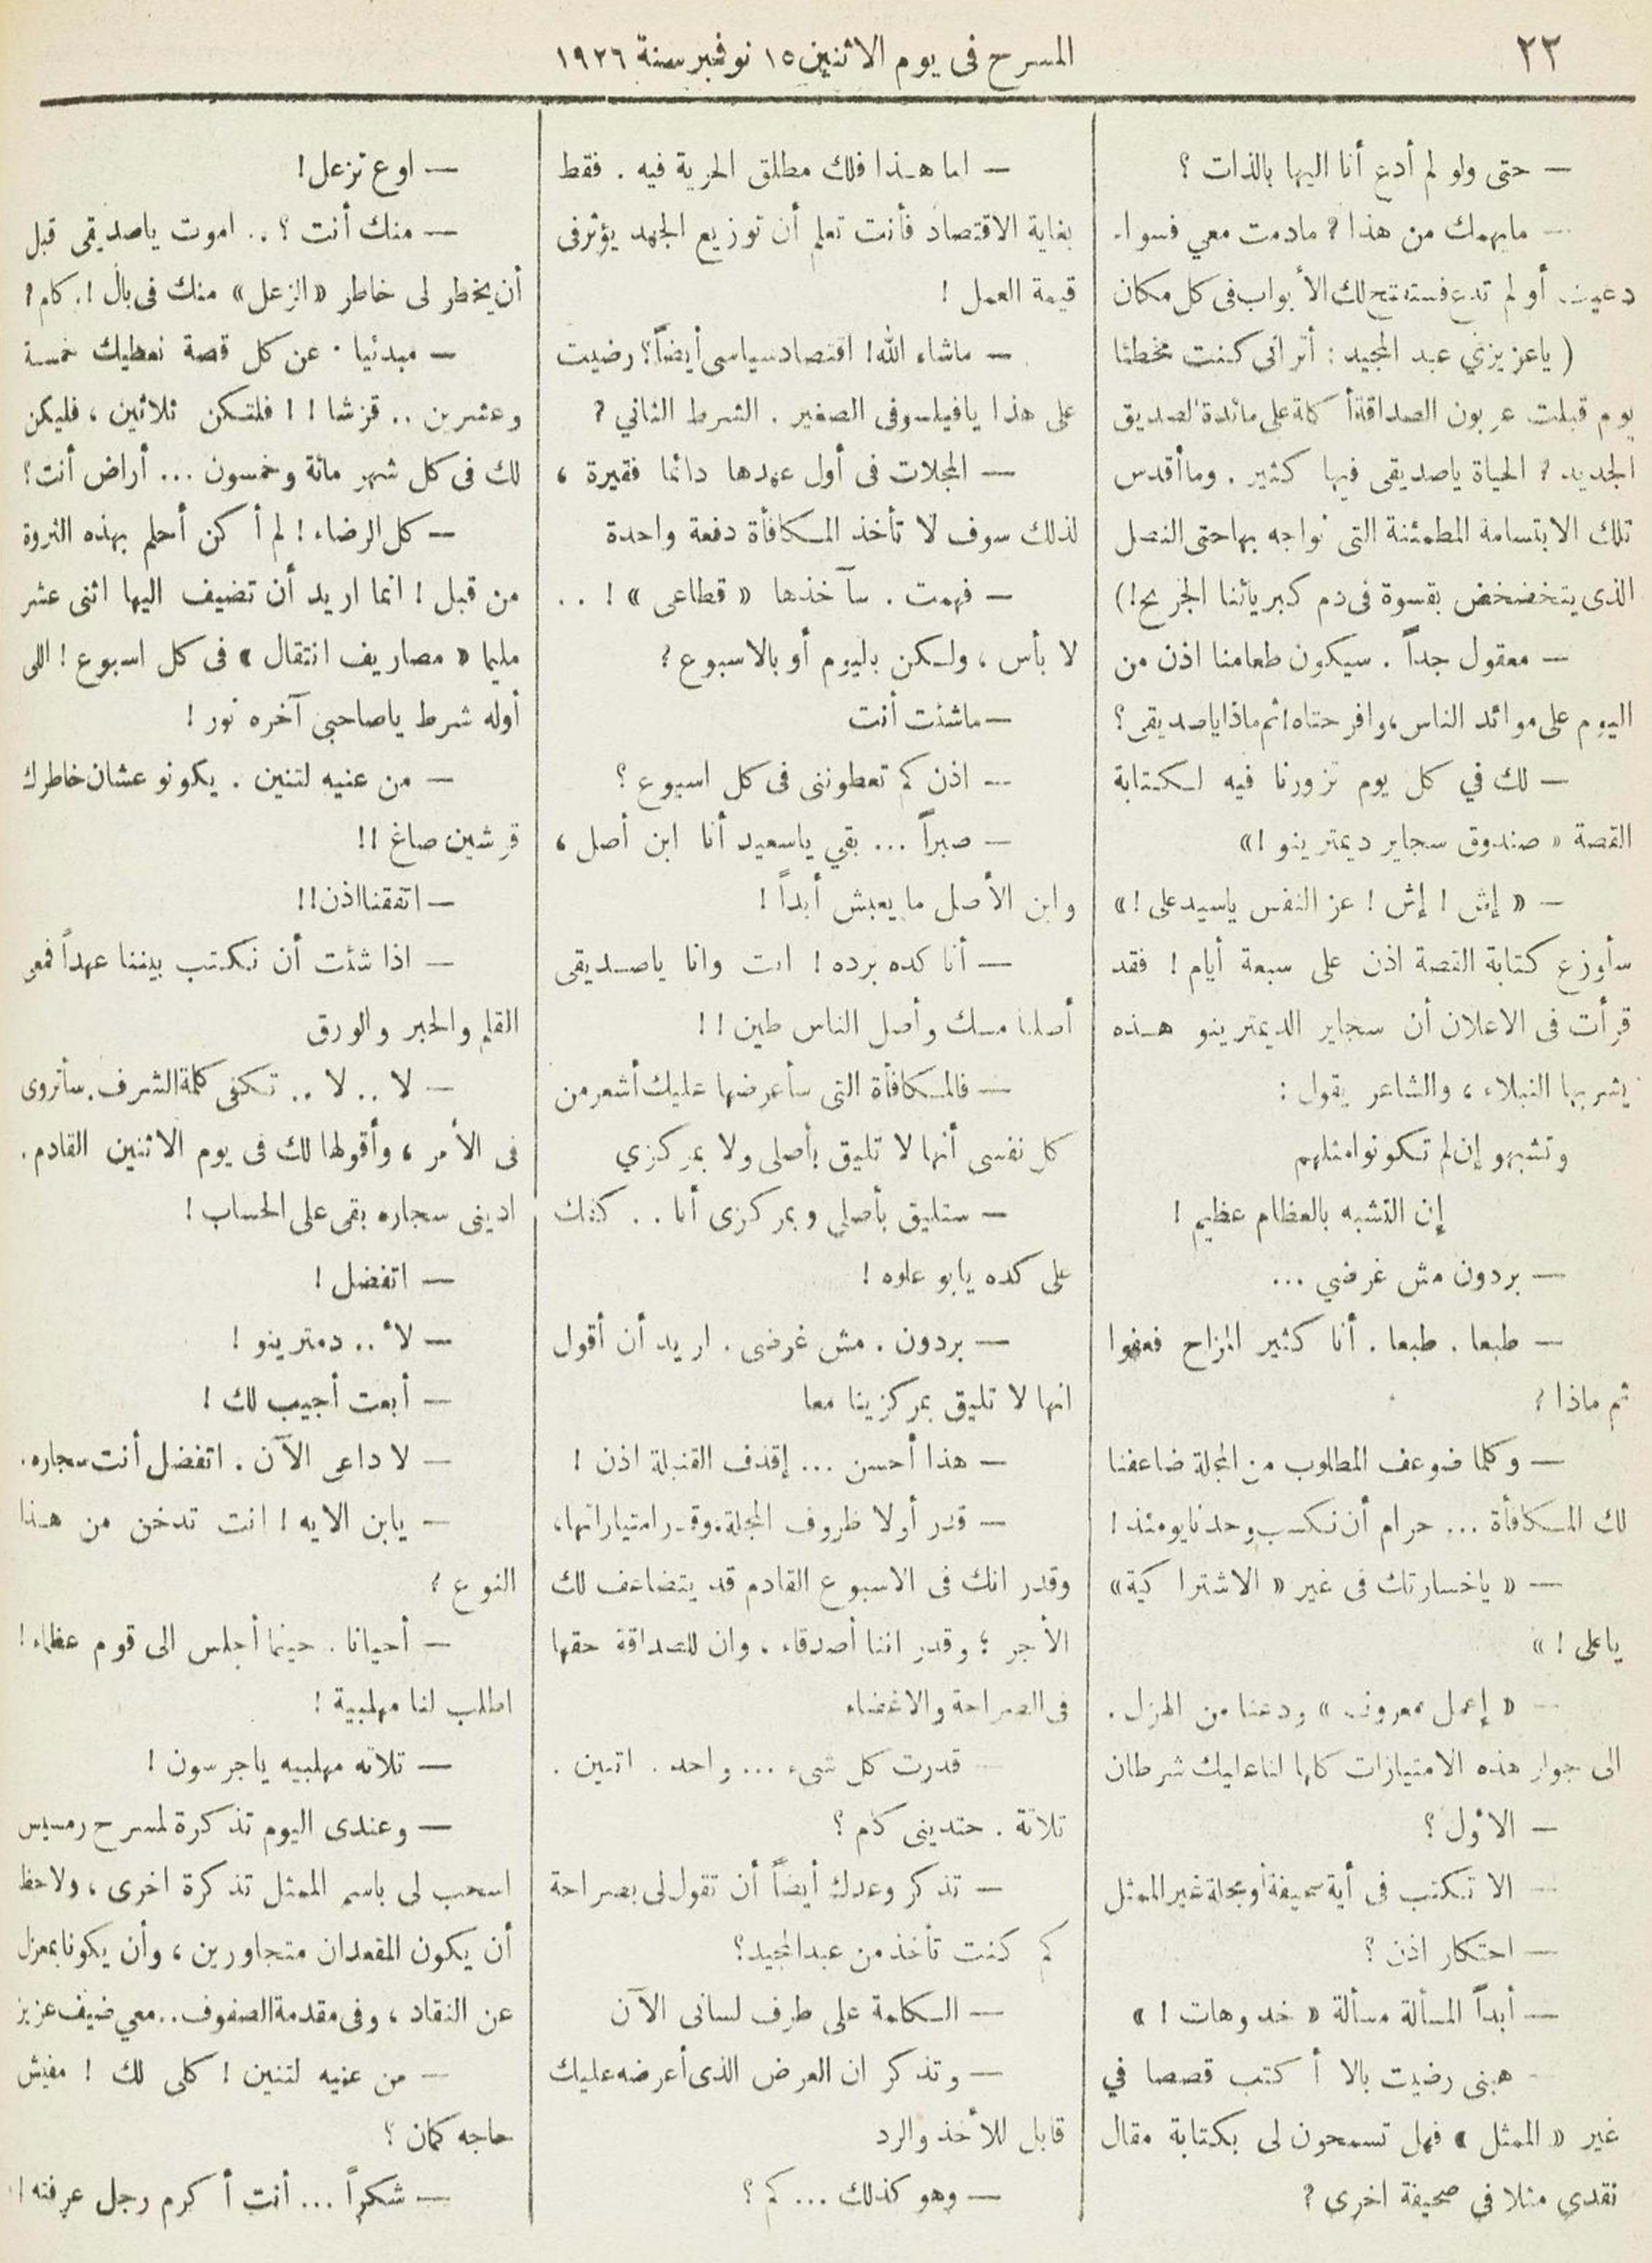 ٢٢
المسرح فى يوم الاثنين ١٥ نوفمبر سنة ١٩٢٦
— حتى ولو لم أدع أنا اليها بالذات ؟
— مايهمك من هذا ? مادمت معي فسواء
دعيت أو لم تدع فستفتح لك الأبواب فى كل مكان
( ياعزيزي عبد المجيد : أترانى كنت مخطئا
يوم قبلت عربون الصداقة أكلة على مائدة الصديق
الجديد ? الحياة ياصديقى فيها كثير . وما أقدس
تلك الابتسامة المطمئنة التى نواجه بها حتى النصل
الذى يتخضخض بقسوة فى دم كبريائنا الجريح !)
— معقول جداً . سيكون طعامنا اذن من
اليوم على موائد الناس ، وافرحتاه ! ثم ماذا ياصديقى ؟
— لك في كل يوم تزورنا فيه لكتابة
القصة « صندوق سجاير ديمترينو !»
— « إش ! إش ! عز النفس ياسيد على !»
سأوزع كتابة القصة اذن على سبعة أيام ! فقد
قرأت فى الاعلان أن سجاير الديمترينو هذه
يشربها النبلاء ، والشاعر يقول :
وتشبهو إن لم تكونوا مثلهم
إن التشبه بالعظام عظيم !
— بردون مش غرضي ...
— طبعا . طبعا . أنا كثير المزاح فعفوا
ثم ماذا ?
— وكلما ضوعف المطلوب من المجلة ضاعفنا
لك المكافأة ... حرام أن نكسب وحدنا يومئذ !
— « ياخسارتك فى غير « الاشتراكية »
ياعلى ! »
— « إعمل معروف » ودعنا من الهزل .
الى جوار هذه الامتيازات كلها لنا عليك شرطان
— الأول ؟
— الا تكتب فى أية صحيفة أو مجلة غير الممثل
— احتكار اذن ؟
— أبداً المسألة مسألة « خد وهات ! »
— هبنى رضيت بالا أكتب قصصا في
غير « الممثل » فهل تسمحون لى بكتابة مقال
نقدى مثلا في صحيفة اخرى ?
— اما هذا فلك مطلق الحرية فيه . فقط
بغاية الاقتصاد فأنت تعلم أن توزيع الجهد يؤثر فى
قيمة العمل !
— ماشاء الله ! اقتصاد سياسى أيضاً ؟ رضيت
على هذا يافيلسوفى الصغير . الشرط الثاني ?
— المجلات فى أول عهدها دائما فقيرة ،
لذلك سوف لا تأخذ المكافأة دفعة واحدة
— فهمت . سآخذها « قطاعى » ! . .
لا بأس ، ولكن باليوم أو بالاسبوع ?
— ماشئت أنت
— اذن كم تعطوننى فى كل اسبوع ؟
— صبراً ... بقي ياسعيد أنا ابن أصل ،
وابن الأصل مايعبش أبداً !
— أنا كده برده ! انت وانا ياصديقى
أصلنا مسك وأصل الناس طين ! !
— فالمكافأة التى سأعرضها عليك أشعر من
كل نفسى أنها لا تليق بأصلى ولا بمركزي
— ستليق بأصلي وبمركزى أنا . . كتك
على كده يابو علوه !
— بردون . مش غرضى . اريد أن أقول
انها لا تليق بمركزينا معا
— هذا أحسن ... إقذف القنبلة اذن !
— قدر أولا ظروف المجلة . وقدر امتيازاتها ،
وقدر انك فى الاسبوع القادم قد يتضاعف لك
الأجر ؛ وقدر اننا أصدقاء . وان للصداقة حقها
فى الصراحة والاغضاء
— قدرت كل شىء ... واحد . اتنين .
تلاتة . حتدينى كام ؟
— تذكر وعدك أيضاً أن تقول لى بصراحة
كم كنت تأخذ من عبد المجيد ؟
— الكلمة على طرف لسانى الآن
— وتذكر ان العرض الذى أعرضه عليك
قابل للأخذ والرد
— وهو كذلك ... كم ؟
— اوع تزعل !
— منك أنت ؟ .. اموت ياصديقى قبل
أن يخطر لى خاطر « الزعل » منك فى بال ! . كام ?
— مبدئيا . عن كل قصة نعطيك خمسة
وعشرين .. قرشا ! ! فلتكن ثلاثين ، فليكن
لك فى كل شهر مائة وخمسون ... أراض أنت ؟
— كل الرضاء ! لم أكن أحلم بهذه الثروة
من قبل ! انما اريد أن تضيف اليها اثنى عشر
مليما « مصاريف انتقال » فى كل اسبوع ! اللى
أوله شرط ياصاحبى آخره نور !
— من عنيه لتنين . يكونو عشان خاطرك
قرشين صاغ !!
— اتفقنا اذن !!
— اذا شئت أن نكتب بيننا عهداً فمعى
القلم والحبر والورق
— لا .. لا .. تكفى كلمة الشرف . سأتروى
فى الأمر ، وأقولها لك فى يوم الاثنين القادم .
ادينى سجاره بقى على الحساب !
— اتفضل !
— لأ .. دمترينو !
— أبعت أجيب لك !
— لا داعى الآن . اتفضل أنت سجاره .
— يابن الايه ! انت تدخن من هذا
النوع ?
— أحيانا . حينما أجلس الى قوم عظماء !
اطلب لنا مهلبية !
— تلاته مهلبيه ياجرسون !
— وعندى اليوم تذكرة لمسرح رمسيس
اسحب لى باسم الممثل تذكرة اخرى ، ولاحظ
أن يكون المقعدان متجاورين ، وأن يكونا بمعزل
عن النقاد ، وفى مقدمة الصفوف .. معي ضيف عزيز
— من عنيه لتنين ! كلى لك ! مفيش
حاجه كمان ؟
— شكراً ... أنت أكرم رجل عرفته !